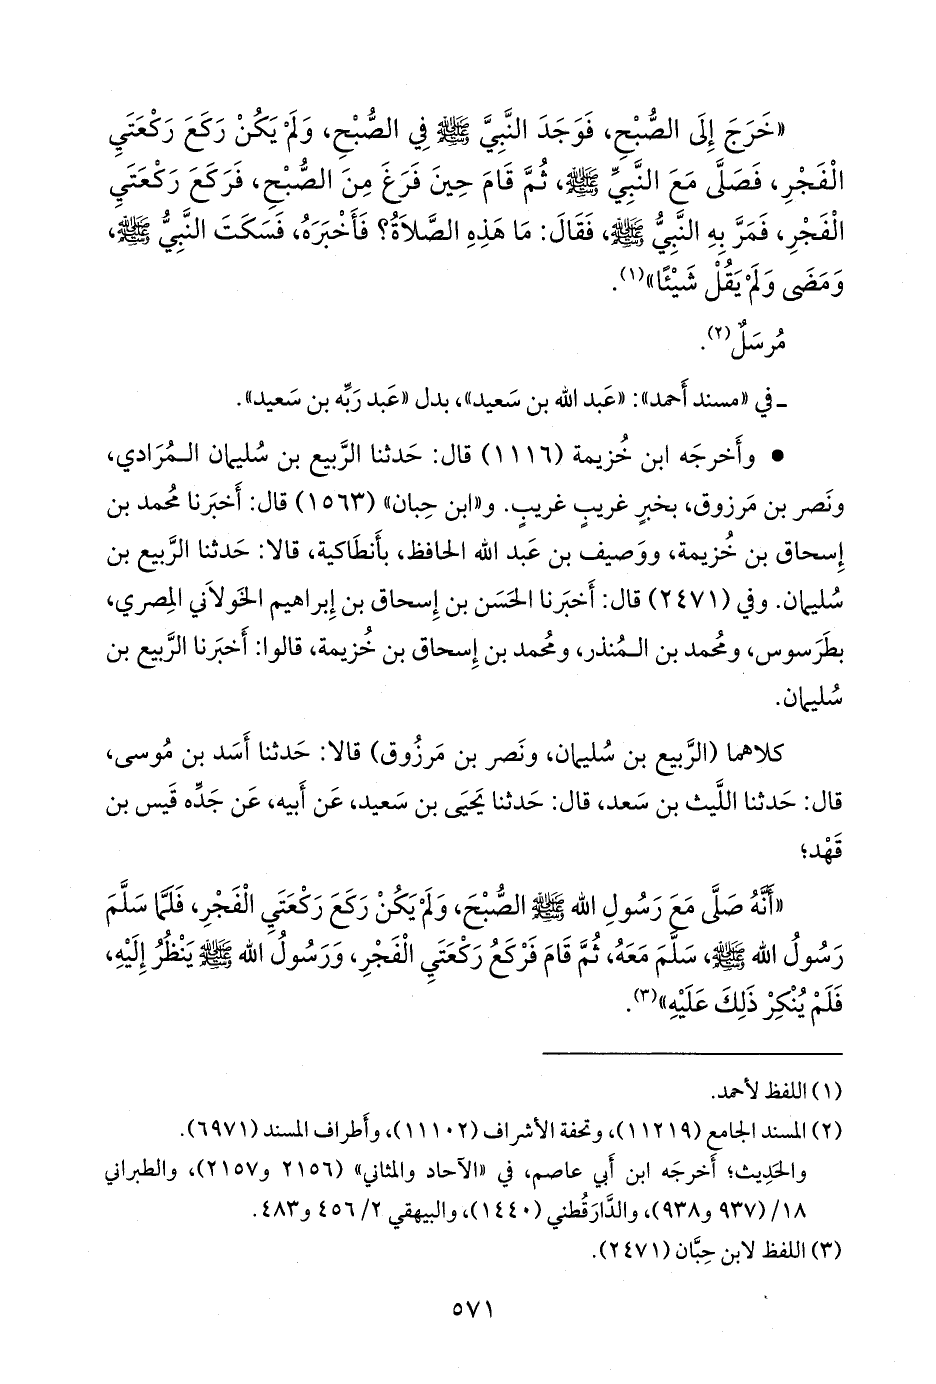 «خَرَجَ إِلَى الصُّبْحِ، فَوَجَدَ النَّبِيَّ ﷺ فِي الصُّبْحِ، وَلَمْ يَكُنْ رَكَعَ رَكْعَتَيِ
الْفَجْرِ، فَصَلَّى مَعَ النَّبِيِّ ﷺ، ثُمَّ قَامَ حِينَ فَرَغَ مِنَ الصُّبْحِ، فَرَكَعَ رَكْعَتَيِ
الْفَجْرِ، فَمَرَّ بِهِ النَّبِيُّ ﷺ، فَقَالَ: مَا هَذِهِ الصَّلَاةُ؟ فَأَخْبَرَهُ، فَسَكَتَ النَّبِيُّ ﷺ،
وَمَضَى وَلَمْ يَقُلْ شَيْئًا»(١).
مُرسَلٌ(٢).
ـ في «مسند أَحمد»: «عَبد الله بن سَعيد»، بدل «عَبد رَبِّه بن سَعيد».
• وأَخرجَه ابن خُزيمة (١١١٦) قال: حَدثنا الرَّبيع بن سُليمان الـمُرَادي،
ونَصر بن مَرزوق، بخبرٍ غريبٍ غريبٍ. و«ابن حِبان» (١٥٦٣) قال: أَخبَرنا مُحمد بن
إِسحاق بن خُزيمة، ووَصيف بن عَبد الله الحافظ، بأَنطَاكية، قالا: حَدثنا الرَّبيع بن
سُليمان. وفي (٢٤٧١) قال: أَخبَرنا الحَسَن بن إِسحاق بن إِبراهيم الخَولاَني المِصري،
بطَرَسوس، ومُحمد بن الـمُنذر، ومُحمد بن إِسحاق بن خُزيمة، قالوا: أَخبَرنا الرَّبيع بن
سُليمان.
كلاهما (الرَّبيع بن سُليمان، ونَصر بن مَرزُوق) قالا: حَدثنا أَسَد بن مُوسى،
قال: حَدثنا اللَّيث بن سَعد، قال: حَدثنا يَحيَى بن سَعيد، عَن أَبيه، عَن جَدِّه قَيس بن
قَهْد؛
«أَنَّهُ صَلَّى مَعَ رَسُولِ الله ﷺ الصُّبْحَ، وَلَمْ يَكُنْ رَكَعَ رَكْعَتَيِ الْفَجْرِ، فَلَمَّا سَلَّمَ
رَسُولُ الله ﷺ، سَلَّمَ مَعَهُ، ثُمَّ قَامَ فَرْكَعُ رَكْعَتَيِ الْفَجْرِ، وَرَسُولُ الله ﷺ يَنْظُرُ إِلَيْهِ،
فَلَمْ يُنْكِرْ ذَلِكَ عَلَيْهِ»(٣).
(١) اللفظ لأحمد.
(٢) المسند الجامع (١١٢١٩)، وتحفة الأشراف (١١١٠٢)، وأَطراف المسند (٦٩٧١).
والحَدِيث؛ أَخرجَه ابن أَبي عاصم، في «الآحاد والمثاني» (٢١٥٦ و٢١٥٧)، والطبراني
١٨/ (٩٣٧ و٩٣٨)، والدَّارَقُطني (١٤٤٠)، والبيهقي ٢/ ٤٥٦ و٤٨٣.
(٣) اللفظ لابن حِبَّان (٢٤٧١).
٥٧١